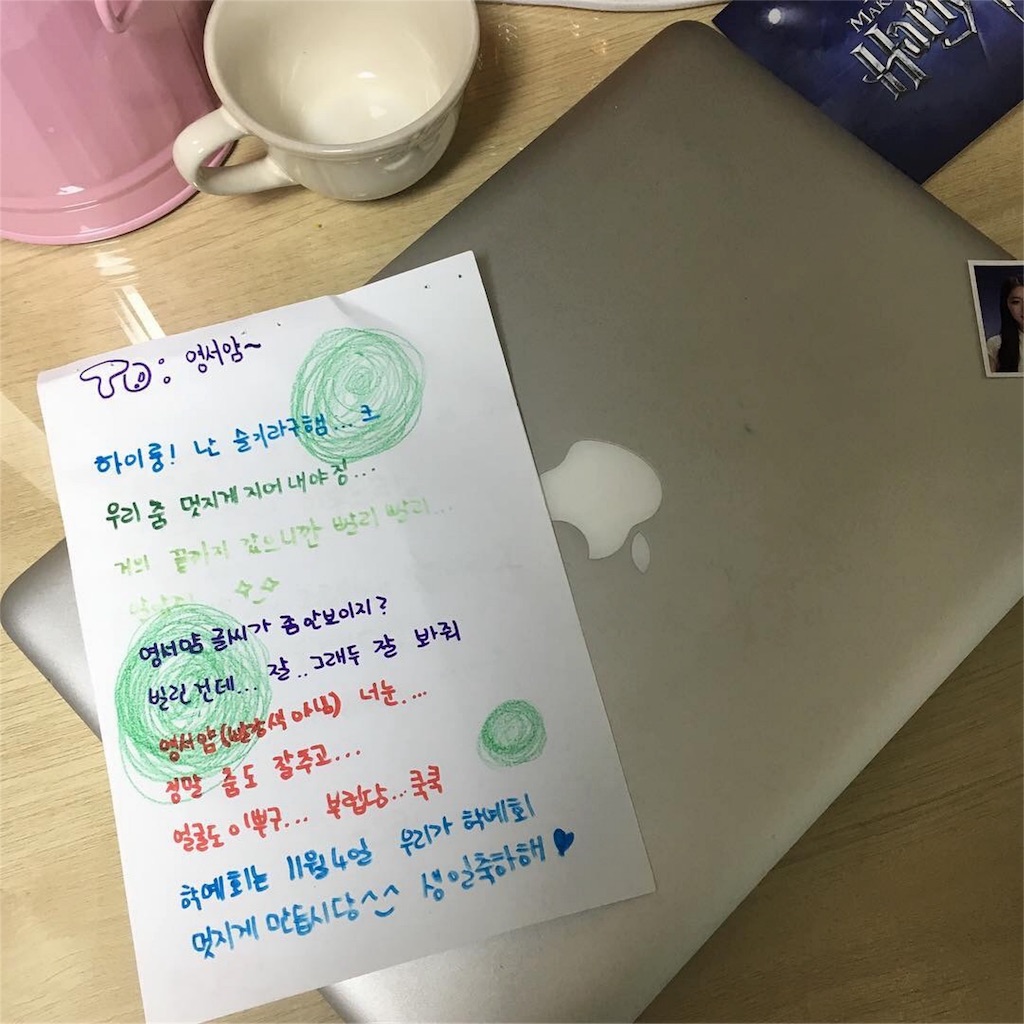 MAK
Harry
To: 영서얌~
하이룽! 난 슬기라구햄... ㅋ
우리 춤 멋지게 지어 내야징...
거의 끝까지 갔으니깐 빨리 빨리...
영서얌 글씨가 좀 안보이지?
빌린건데... 잘.. 그래두 잘 봐줘
영서얌 (빨강색 아님) 너눈...
정말 춤도 잘추고...
얼굴도 이뿌구... 부럽당...쿡쿡
학예회는 11월 4일 우리가 학예회
멋지게 만듭시당^_^ 생일축하해♥